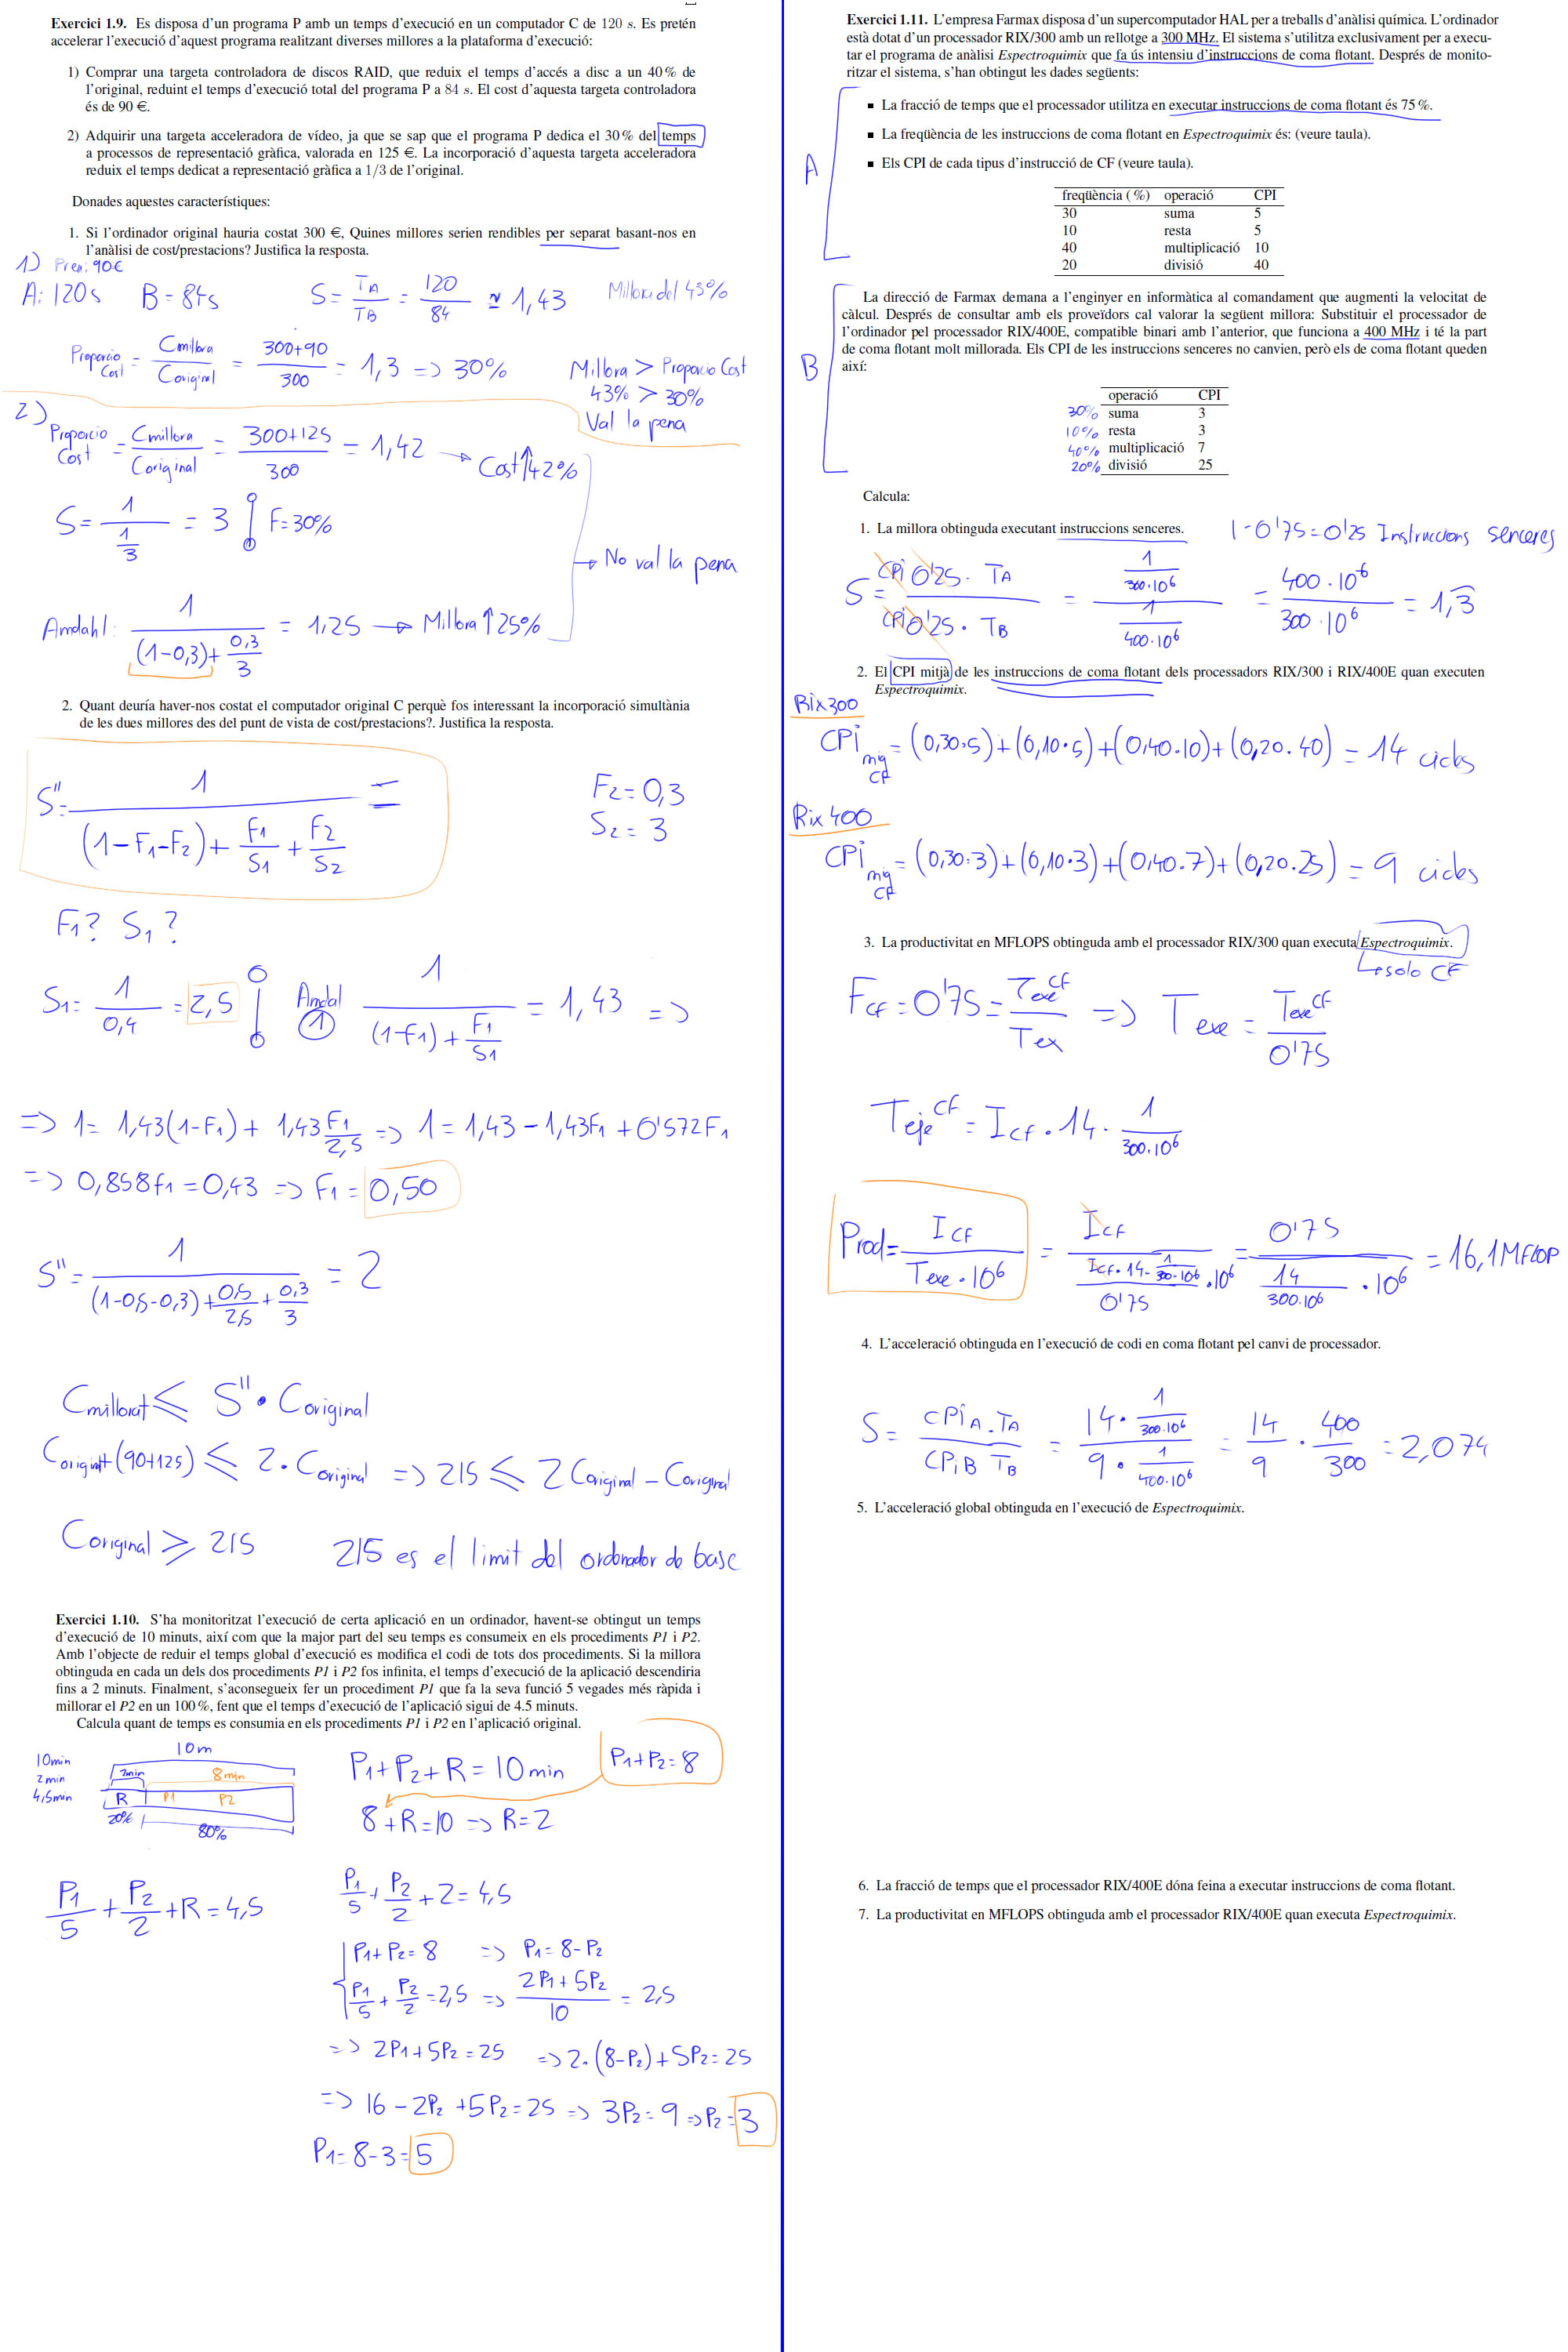 Exercici 1.9. Es disposa d'un programa P amb un temps d'execució en un computador C de 120 s. Es pretén
accelerar l'execució d'aquest programa realitzant diverses millores a la plataforma d'execució:
1) Comprar una targeta controladora de discos RAID, que reduix el temps d'accés a disc a un 40 % de
l'original, reduint el temps d'execució total del programa P a 84 s. El cost d'aquesta targeta controladora
és de 90 €.
2) Adquirir una targeta acceleradora de vídeo, ja que se sap que el programa P dedica el 30 % del temps
a processos de representació gràfica, valorada en 125 €. La incorporació d'aquesta targeta acceleradora
reduix el temps dedicat a representació gràfica a 1/3 de l'original.
Donades aquestes característiques:
1. Si l'ordinador original hauria costat 300 €, Quines millores serien rendibles per separat basant-nos en
l'anàlisi de cost/prestacions? Justifica la resposta.
1) Preu: 90€
A: 120s B = 84s S = TA / TB = 120 / 84 ≃ 1,43 Millora del 43%
Proporcio Cost = Cmillora / Coriginal = 300+90 / 300 = 1,3 => 30% Millora > Proporcio Cost
43% > 30%
Val la pena
2) Proporcio Cost = Cmillora / Coriginal = 300+125 / 300 = 1,42 → Cost ↑ 42%
S = 1 / (1/3) = 3 F = 30%
→ No val la pena
Amdahl: 1 / ((1-0,3) + 0,3/3) = 1,25 → Millora ↑ 25%
2. Quant deuría haver-nos costat el computador original C perquè fos interessant la incorporació simultània
de les dues millores des del punt de vista de cost/prestacions?. Justifica la resposta.
S'' = 1 / ((1-F1-F2) + F1/S1 + F2/S2) =
F2 = 0,3
S2 = 3
F1? S1?
S1 = 1 / 0,4 = 2,5 Amdal 1 1 / ((1-F1) + F1/S1) = 1,43 =>
=> 1 = 1,43(1-F1) + 1,43 F1/2,5 => 1 = 1,43 - 1,43F1 + 0'572F1
=> 0,858F1 = 0,43 => F1 = 0,50
S'' = 1 / ((1-0,5-0,3) + 0,5/2,5 + 0,3/3) = 2
Cmillorat ≤ S'' · Coriginal
Coriginal + (90+125) ≤ 2 · Coriginal => 215 ≤ 2 Coriginal - Coriginal
Coriginal ≥ 215 215 es el limit del ordenador de base
Exercici 1.10. S'ha monitoritzat l'execució de certa aplicació en un ordinador, havent-se obtingut un temps
d'execució de 10 minuts, així com que la major part del seu temps es consumeix en els procediments P1 i P2.
Amb l'objecte de reduir el temps global d'execució es modifica el codi de tots dos procediments. Si la millora
obtinguda en cada un dels dos procediments P1 i P2 fos infinita, el temps d'execució de la aplicació descendiria
fins a 2 minuts. Finalment, s'aconsegueix fer un procediment P1 que fa la seva funció 5 vegades més ràpida i
millorar el P2 en un 100 %, fent que el temps d'execució de l'aplicació sigui de 4.5 minuts.
Calcula quant de temps es consumia en els procediments P1 i P2 en l'aplicació original.
10min
2min
4,5min
10m
2min 8min
R P1 P2
20% 80%
P1 + P2 + R = 10min P1+P2=8
8 + R = 10 => R = 2
P1/5 + P2/2 + R = 4,5
P1/5 + P2/2 + 2 = 4,5
P1 + P2 = 8 => P1 = 8 - P2
P1/5 + P2/2 = 2,5 => 2P1 + 5P2 / 10 = 2,5
=> 2P1 + 5P2 = 25 => 2·(8-P2) + 5P2 = 25
=> 16 - 2P2 + 5P2 = 25 => 3P2 = 9 => P2 = 3
P1 = 8 - 3 = 5
Exercici 1.11. L'empresa Farmax disposa d'un supercomputador HAL per a treballs d'anàlisi química. L'ordinador
està dotat d'un processador RIX/300 amb un rellotge a 300 MHz. El sistema s'utilitza exclusivament per a execu-
tar el programa de anàlisi Espectroquimix que fa ús intensiu d'instruccions de coma flotant. Després de monito-
ritzar el sistema, s'han obtingut les dades següents:
A
▪ La fracció de temps que el processador utilitza en executar instruccions de coma flotant és 75 %.
▪ La freqüència de les instruccions de coma flotant en Espectroquimix és: (veure taula).
▪ Els CPI de cada tipus d'instrucció de CF (veure taula).
freqüència ( %) operació CPI
30 suma 5
10 resta 5
40 multiplicació 10
20 divisió 40
B
La direcció de Farmax demana a l'enginyer en informàtica al comandament que augmenti la velocitat de
càlcul. Després de consultar amb els proveïdors cal valorar la següent millora: Substituir el processador de
l'ordinador pel processador RIX/400E, compatible binari amb l'anterior, que funciona a 400 MHz i té la part
de coma flotant molt millorada. Els CPI de les instruccions senceres no canvien, però els de coma flotant queden
així:
operació CPI
30% suma 3
10% resta 3
40% multiplicació 7
20% divisió 25
Calcula:
1. La millora obtinguda executant instruccions senceres. 1-0'75=0'25 Instruccions senceres
S = CPi 0'25 · TA / CPi 0'25 · TB = (1 / 300·10⁶) / (1 / 400·10⁶) = 400·10⁶ / 300·10⁶ = 1,3̄
2. El CPI mitjà de les instruccions de coma flotant dels processadors RIX/300 i RIX/400E quan executen
Espectroquimix.
Rix300
CPi mig CF = (0,30·5)+(0,10·5)+(0,40·10)+(0,20·40) = 14 cicles
Rix 400
CPi mig CF = (0,30·3)+(0,10·3)+(0,40·7)+(0,20·25) = 9 cicles
3. La productivitat en MFLOPS obtinguda amb el processador RIX/300 quan executa Espectroquimix.
↳ solo CF
FCF = 0'75 = Texe CF / Tex => Texe = Texe CF / 0'75
Teje CF = ICF · 14 · 1 / 300·10⁶
Prod = ICF / Texe · 10⁶ = ICF / ((ICF · 14 · 1/300·10⁶) / 0'75 · 10⁶) = 0'75 / (14 / 300·10⁶ · 10⁶) = 16,1 MFLOP
4. L'acceleració obtinguda en l'execució de codi en coma flotant pel canvi de processador.
S = CPiA · TA / CPiB TB = (14 · 1/300·10⁶) / (9 · 1/400·10⁶) = 14/9 · 400/300 = 2,074
5. L'acceleració global obtinguda en l'execució de Espectroquimix.
6. La fracció de temps que el processador RIX/400E dóna feina a executar instruccions de coma flotant.
7. La productivitat en MFLOPS obtinguda amb el processador RIX/400E quan executa Espectroquimix.